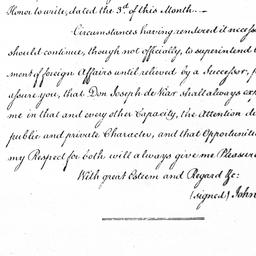 Honor to write, dated the 3d. of this Month.—
Circumstances having rendered it necess
should continue, though not officially, to superintend
ment of foreign Affairs until relieved by a Successor,
assure you, that Don Joseph de Viar shall always ex
me in that and every other Capacity, the Attention de
public and private Character, and that Opportunitie
my Respect for both will always give me Pleasure
With great Esteem and Regard &c:
(signed) John